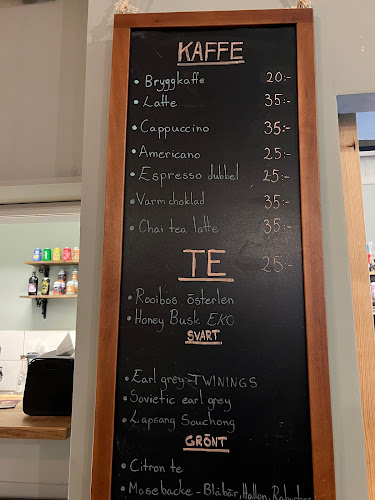 KAFFE
• Bryggkaffe 20:-
• Latte 35:-
• Cappuccino 35:-
• Americano 25:-
• Espresso dubbel 25:-
• Varm choklad 35:-
• Chai tea latte 35:-
TE 25:-
• Rooibos österlen
• Honey Busk EKO
SVART
• Earl grey - TWININGS
• Sovietic earl grey
• Lapsang Souchong
GRÖNT
• Citron te
• Mosebacke - Blåbär, Hallon,